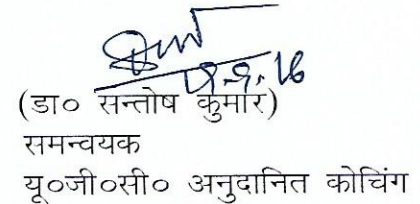 (डा० सन्तोष कुमार)
समन्वयक
यू०जी०सी० अनुदानित कोचिंग